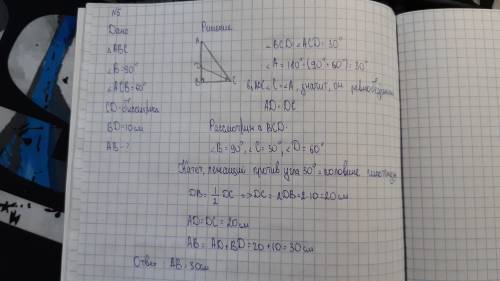 №5
Дано
Решение
△ABC
∠B=90°
∠ACB=60°
CD-биссектриса
BD=10см
AB-?
A
B
C
∠BCD=∠ACD=30°
∠A=180°-(90°+60°)=30°
∠C=∠A, значит, он равнобедренный
AD=DC
Рассмотрим △BCD:
∠B=90°, ∠C=30°, ∠D=60°
Катет, лежащий против угла 30°=половине гипотенузы
DB=1/2 DC =>DC=2DB=2·10=20см
AD=DC=20см
AB=AD+BD=20+10=30см
Ответ: AB=30см